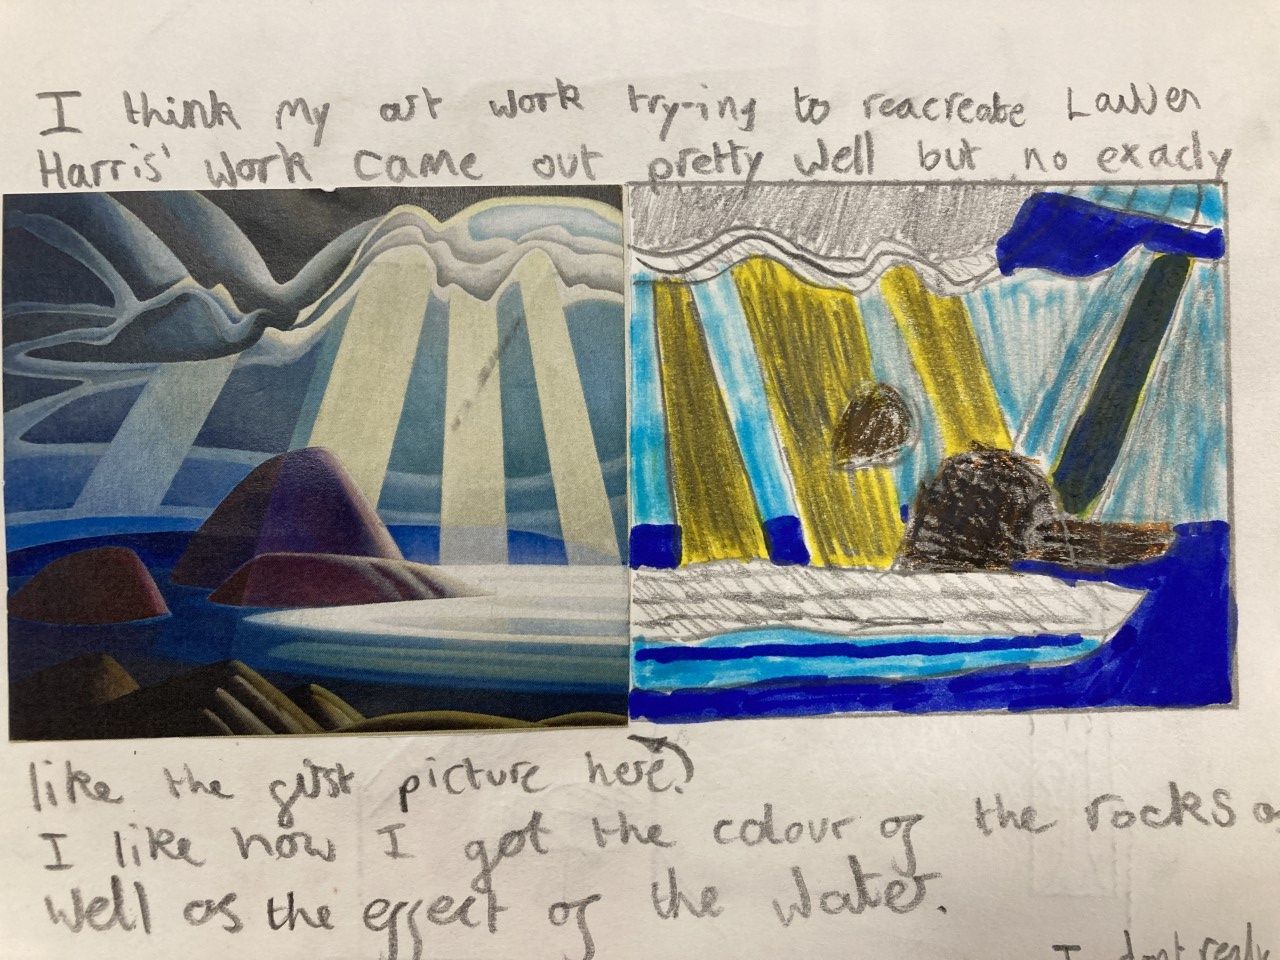 I think my art work try-ing to reacreate Lawren
Harris' work came out pretty well but no exacly
like the girst picture here)
I like how I got the colour of the rocks as
well as the effect of the water.
I dont realy